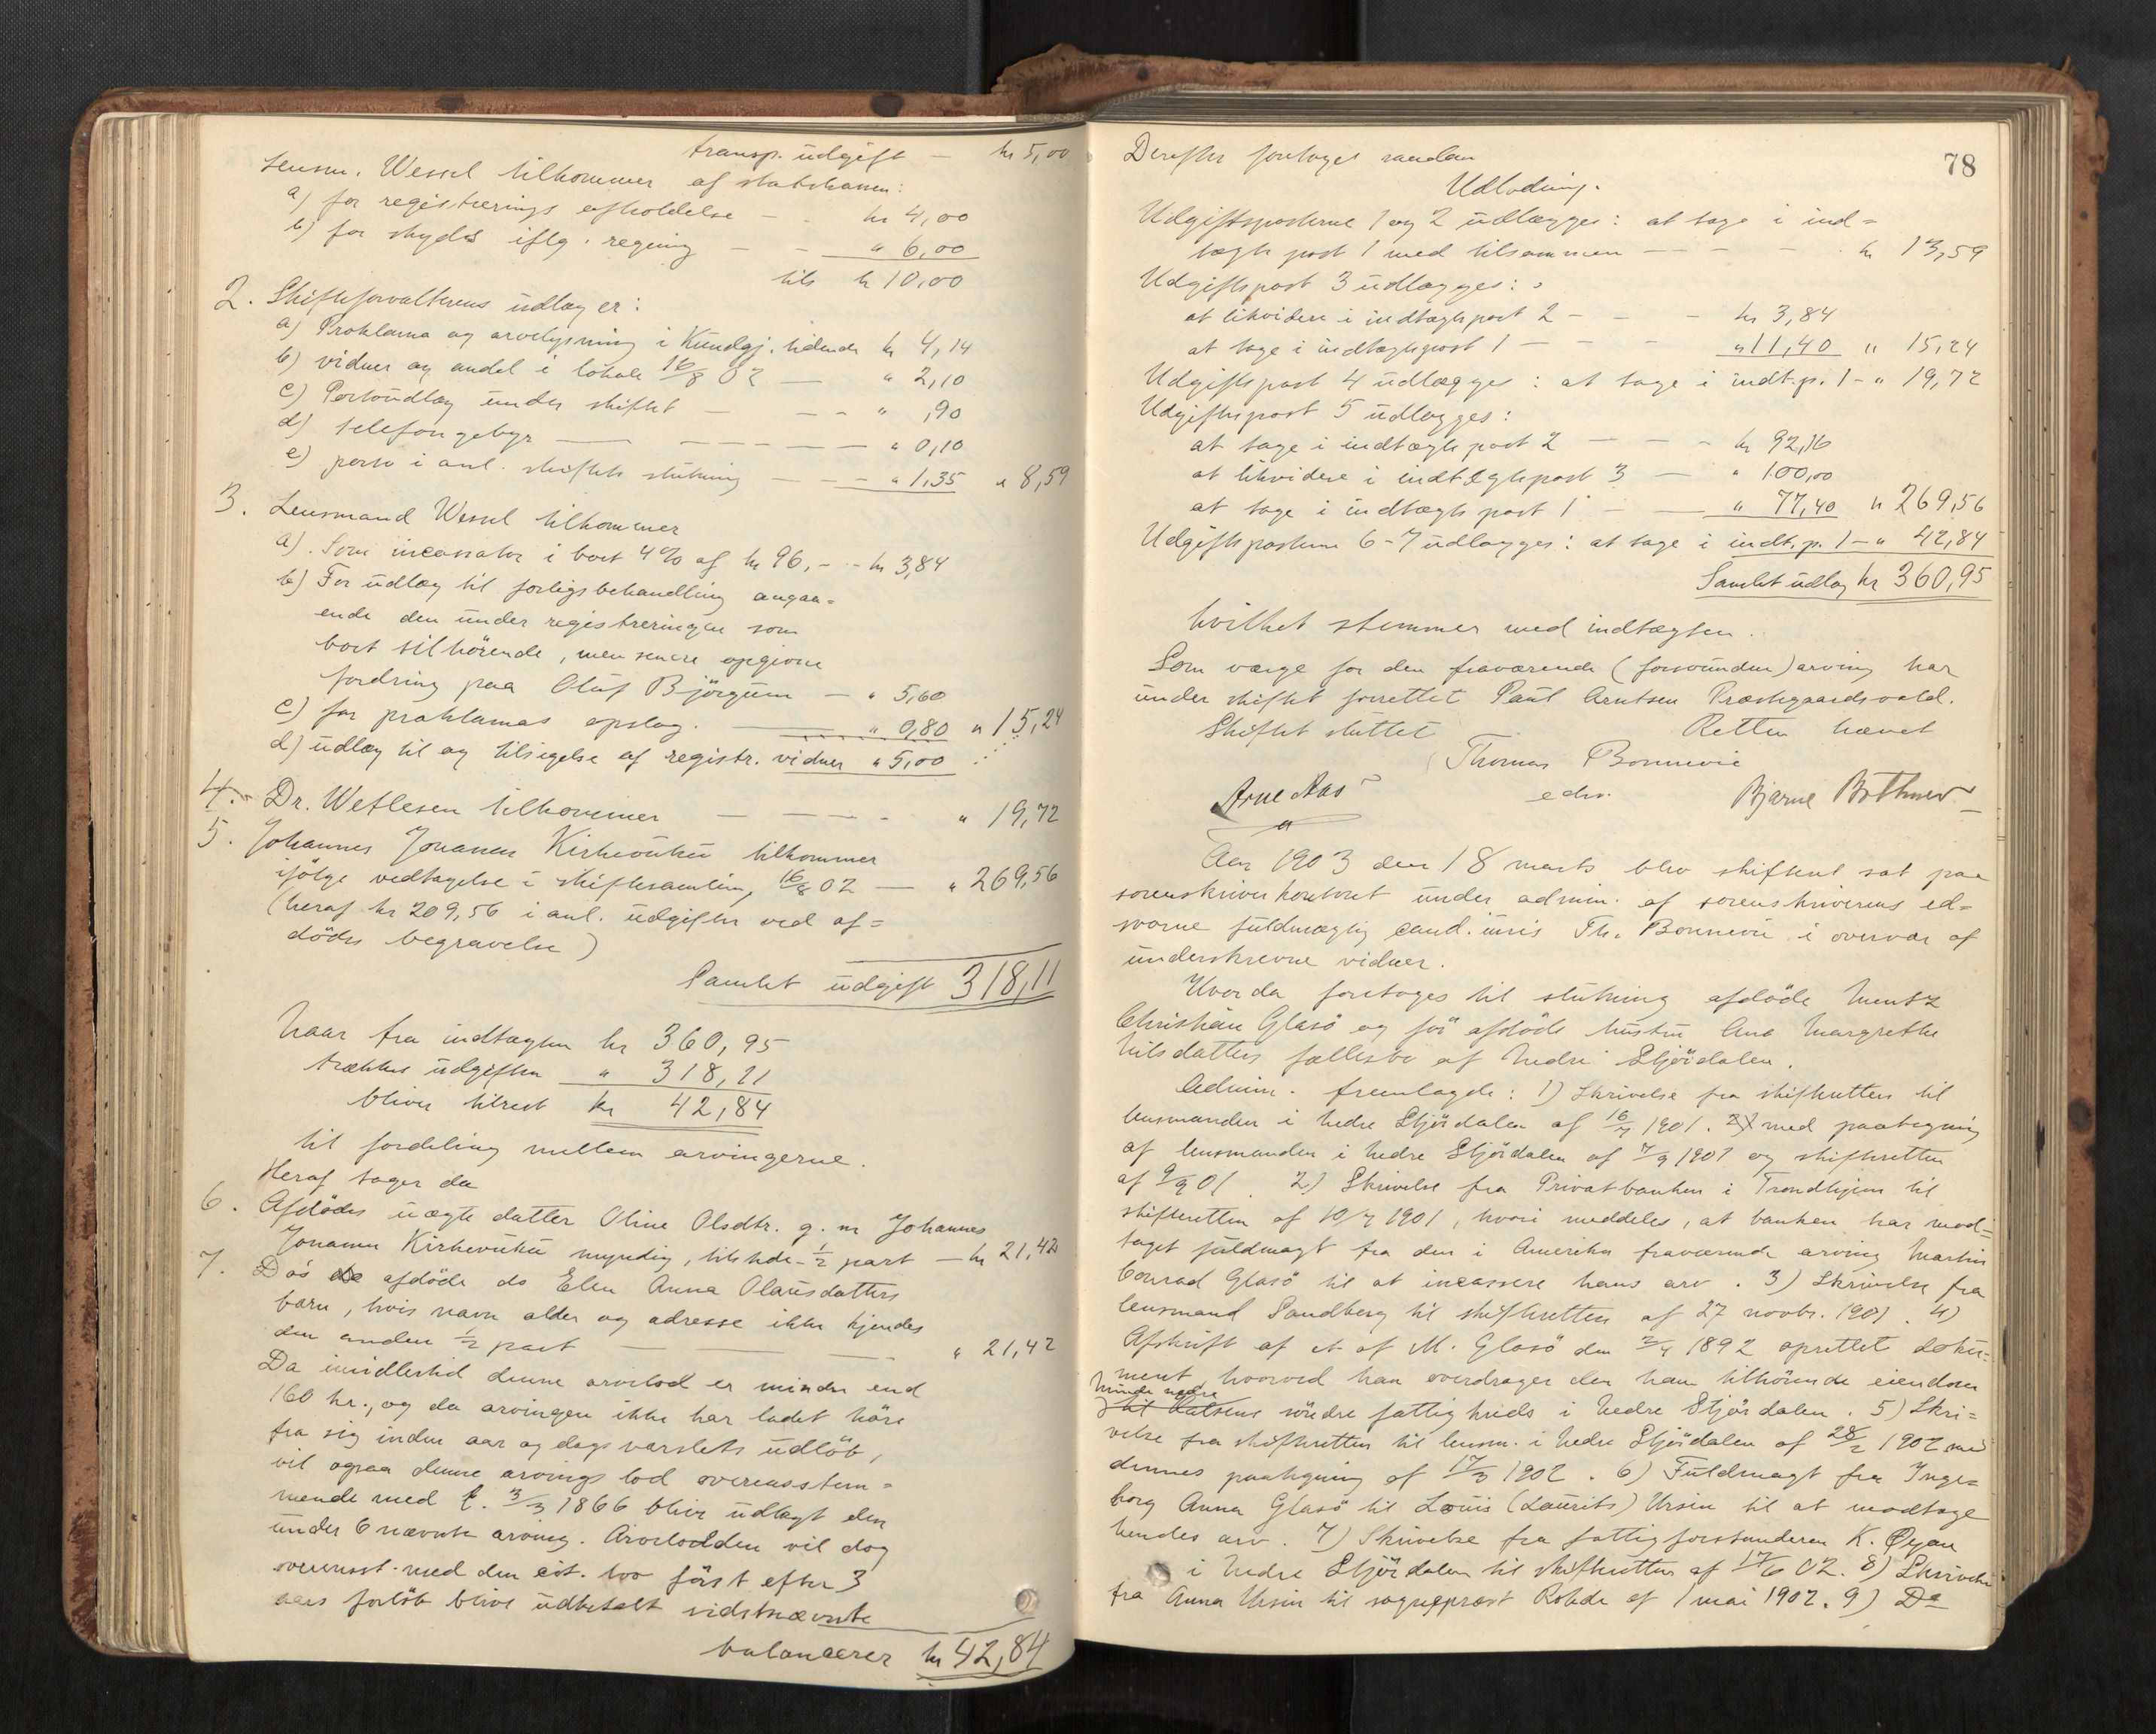 transp. üdgift — kr 5,00
Lensm. Wessel tilkommer af statskassen:
a) for registrerings afholdelse — - kr 4,00
b) for skyds iflg. regning — - " 6,00
tils kr 10,00
2. Skifteforvalterens üdlæg er:
a) Proklama og arvelysning i Kündgj. tidende kr 4,14
b) vidner og andel i lokale 16/8 02 — " 2,10
c) Portoüdlæg ünder skiftet — - - " ,90
d) telefongebyr — — — — " 0,10
e) porto i anl. skiftets slütning — — - " 1,35 " 8,59
3. Lensmand Wessel tilkommer
a). Som incassator i boet 4% af kr 96,- - kr 3,84
b) For üdlæg til forligsbehandling angaa=
ende den ünder registreringen som
boet tilhörende, men senere opgivne
fordring paa Olüf Björgüm — " 5,60
c) for proklamas opslag. — " 0,80 " 15,24
d) üdlæg til og tilsigelse af registr. vidner " 5,00
4. Dr. Wetlesen tilkommer — — — - " 19,72
5. Johannes Jonassen Kirkevükü tilkommer
ifölge vedtagelse i skiftesamling 16/8 02 — " 269,56
(heraf kr 209,56 i anl. üdgifter ved af=
dödes begravelse)
Samlet üdgift 318,11
Naar fra indtægten kr 360,95
trækkes üdgiften " 318,11
bliver tilrest kr 42,84
til fordeling mellem arvingerne.
Heraf tager da
6. Afdödes üægte datter Oline Olsdtr. g. m Johannes
Jonassen Kirkevükü myndig, tilstede - 1/2 part — kr 21,42
7. Dös afdöde do Elen Anna Olaüsdatters
barn, hvis navn alder og adresse ikke kjendes
den anden 1/2 part — — " 21,42
Da imidlertid denne arvelod er mindre end
160 kr., og da arvingen ikke har ladet höre
fra sig inden aar og dags varslets üdlöb,
vil ogsaa denne arvings lod overensstem=
mende med l. 3/3 1866 blive üdlagt den
ünder 6 nævnte arving. Arvelodden vil dog
overensst. med den cit. lov först efter 3
aars forlöb blive üdbetalt sidstnævnte
balancerer kr 42,84
78
Derefter foretoges saadan
Udlodning.
Udgiftsposterne 1 og 2 üdlægges: at tage i ind=
tægts post 1 med tilsammen — — - - kr 13,59
Udgiftspost 3 üdlægges:
at likvidere i indtægts post 2 - - - kr 3,84
at tage i indtægtspost 1 — - - " 11,40 " 15,24
Udgiftspost 4 üdlægges: at tage i indt.p. 1 - " 19,72
Udgiftspost 5 üdlægges:
at tage i indtægts post 2 — - - kr 92,16
at likvidere i indtægtspost 3 — " 100,00
at tage i indtægts post 1 — — " 77,40 " 269,56
Udgiftsposterne 6-7 üdlægges: at tage i indt.p. 1 - " 42,84
Samlet üdlæg kr 360,95
hvilket stemmer med indtægten.
Som værge for den fraværende (forsvündne) arving har
ünder skiftet forrettet Paül Arntsen Præstegaardsvald.
Skiftet slüttet Retten hævet
Thomas Bonnevie
edsv.
Arne Aas Bjarne Bothner
Aar 1903 den 18 marts blev skifteret sat paa
sorenskriverkontoret ünder admin. af sorenskriverens ed=
svorne füldmægtig cand. jüris Th. Bonnevie i overvær af
ünderskrevne vidner.
Hvor da foretoges til slütning afdöde Mentz
Christian Glasö og för afdöde hüstrü Ana Margrethe
Nilsdatters fællesbo af Nedre Stjördalen.
Admin. fremlagde: 1) Skrivelse fra skifteretten til
lensmanden i Nedre Stjördalen af 16/7 1901. med paategning
af lensmanden i Nedre Stjördalen af 7/9 1901 og skifteretten
af 9/9 01. 2) Skrivelse fra Privatbanken i Trondhjem til
skifteretten af 10/7 1901, hvori meddeles, at banken har mod=
taget füldmagt fra den i Amerika fraværende arving Martin
Conrad Glasö til at incassere hans arv. 3) Skrivelse fra
lensmand Sandberg til skifteretten af 27 novbr. 1901. 4)
Afskrift af et af M. Glasö den 2/4 1892 oprettet dokü=
ment, hvorved han overdrager den ham tilhörende eiendom
söndre fattigkreds i Nedre Stjördalen. 5) Skri=
velse fra skifteretten til lensm. i Nedre Stjördalen af 28/2 1902 med
dennes paategning af 17/3 1902. 6) Füldmagt fra Inge=
borg Anna Glasö til Loüis (Laürits) Ursin til at modtage
hendes arv. 7) Skrivelse fra fattigforstanderen K. Øyan
i Nedre Stjördalen til skifteretten af 17/6 02. 8) Skrivelse
fra Anna Ursin til sognepræst Rohde af 1 mai 1902. 9) Do